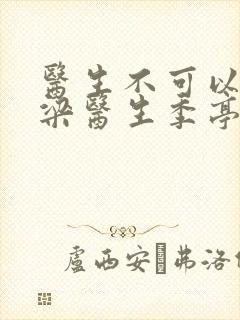 醫生不可以
梁醫生季亭
盧西安·弗洛伊